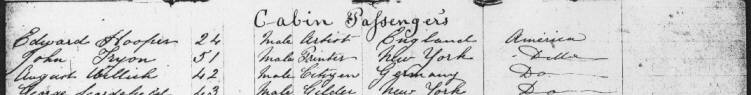 Cabin Passengers
Edward Hooper 24 Male Artist England America
John Tryon 51 Male Printer New York Ditto
August Willich 42 Male Citizen Germany Do
43 Male Gilder New York Do